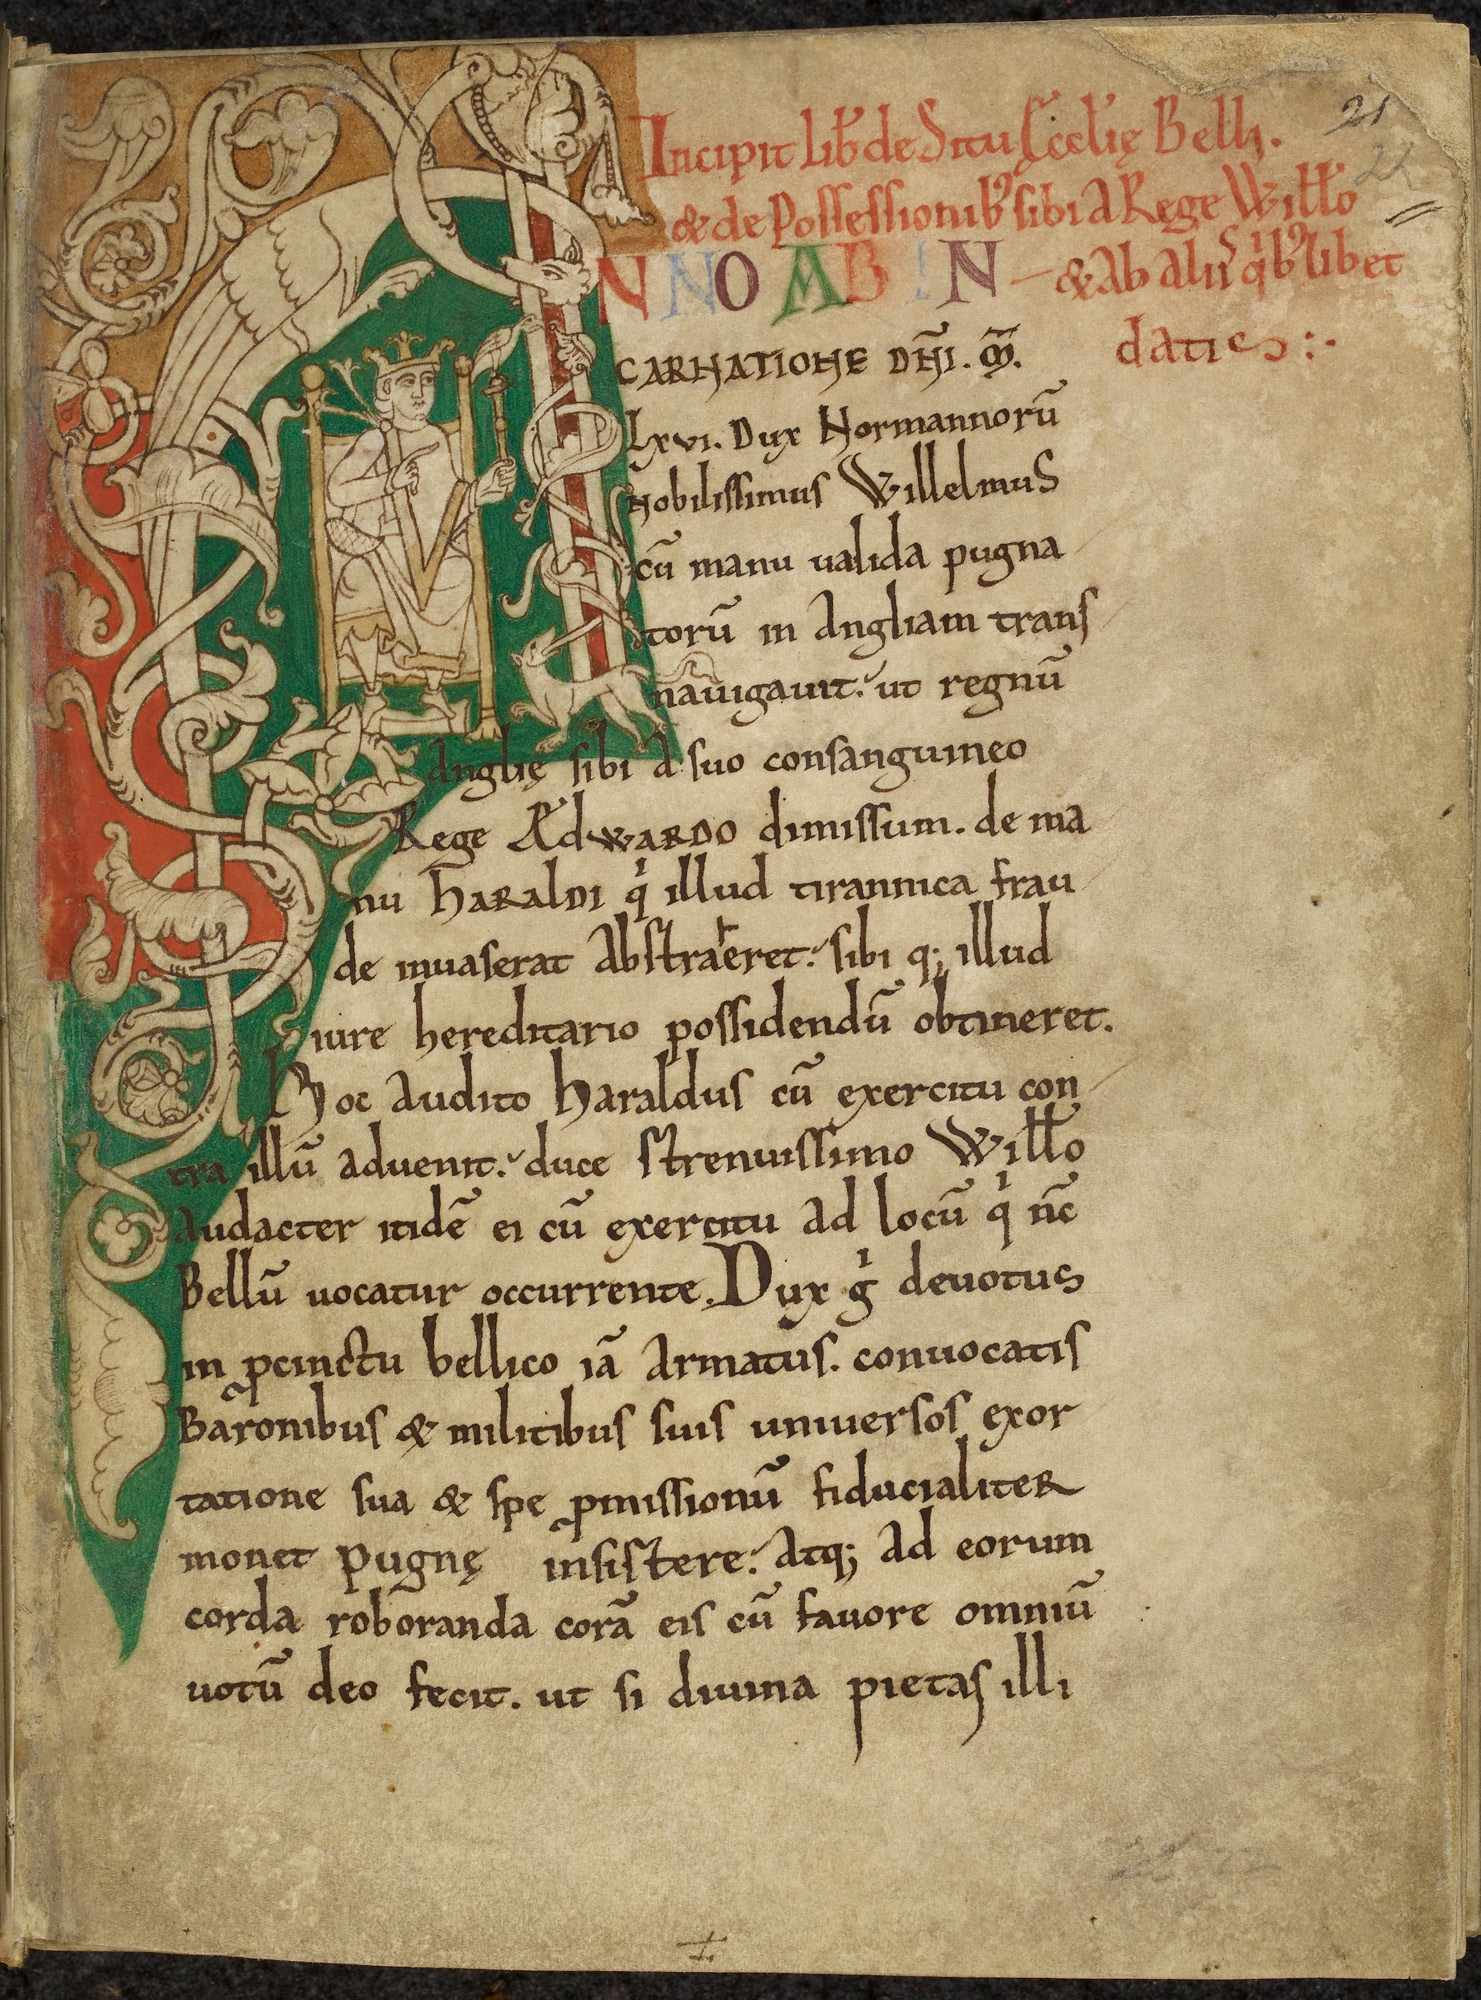 21
22
Incipit lib̄ de Situ Ęccłię Belli.
& de Possessionib⁹ sibi a Rege Willo
& ab aliis qⁱb⁹libet
datis :·
ANNO AB IN
CARNATIONE DN̄I. M̄.
lxvi. Dux Normannorū
nobilissimus Willelmus
cū manu ualida pugna
torū in Angliam trans
nauigauit. ut regnū
Anglię sibi a suo consanguineo
Rege ÆdwARDO dimissum. de ma
nu hARAlDI qⁱ illud tirannica frau
de inuaserat abstraheret. sibi q; illud
iure hereditario possidendū obtineret.
Hoc audito haraldus cū exercitu con
tra illū aduenit. duce strenuissimo Willo
audacter itidē ei cū exercitu ad locū qⁱ nc̄
Bellū uocatur occurrente. Dux gⁱ deuotus
in ꝓcinctu bellico iā armatus. conuocatis
Baronibus & militibus suis uniuersos exor
tatione sua & spe ꝓmissionū fiducialiter
monet pugnę insistere. atq; ad eorum
corda roboranda corā eis cū fauore omniū
uotū deo fecit. ut si diuina pietas illi